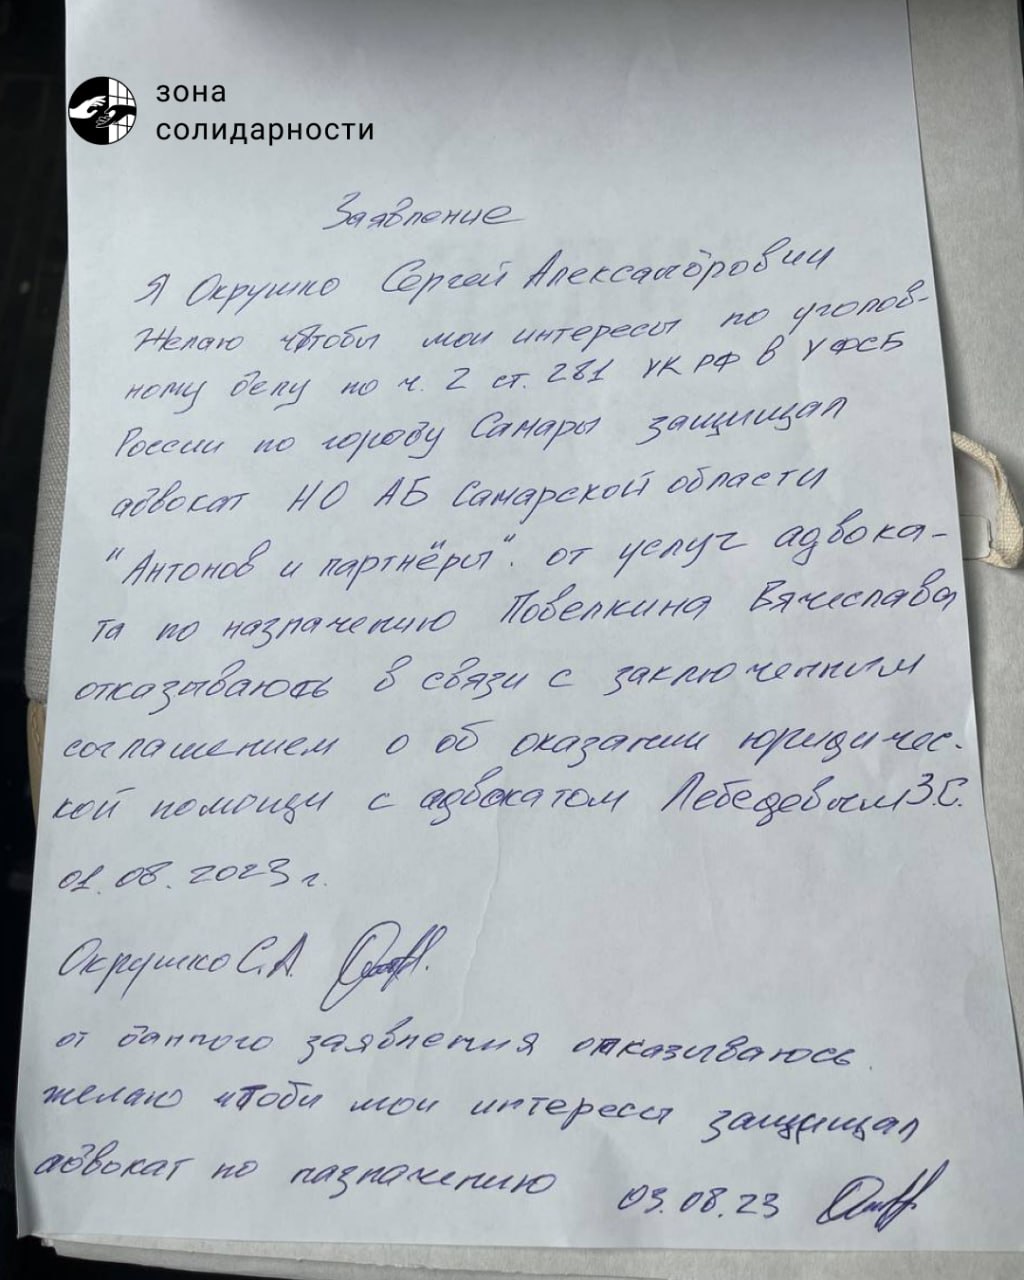 зона
солидарности
Заявление
Я Окрушко Сергей Александрович
Желаю чтобы мои интересы по уголов-
ному делу по ч. 2 ст. 281 УК РФ в УФСБ
России по городу Самары защищал
адвокат НО АБ Самарской области
"Антонов и партнёры". от услуг адвока-
та по назначению Повелкина Вячеслава
отказываюсь в связи с заключенным
соглашением о об оказании юридичес-
кой помощи с адвокатом Лебедевым З.С.
01.08.2023 г.
Окрушко С.А.
от данного заявления отказываюсь.
желаю чтобы мои интересы защищал
адвокат по назначению 03.08.23